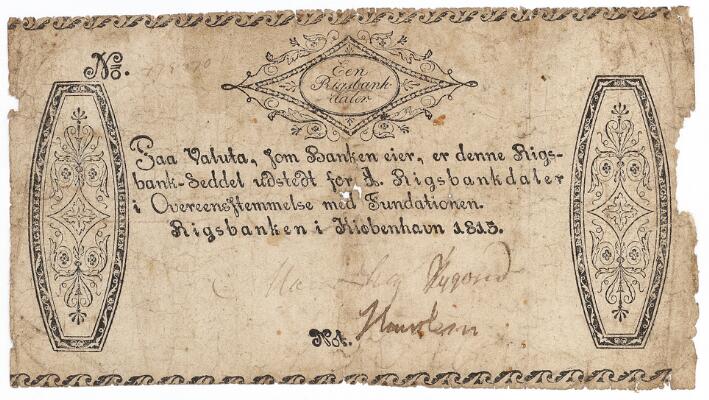 No.
Een
Rigsbank-
daler
Paa Valuta, som Banken eier, er denne Rigs-
bank-Seddel udstedt for 1. Rigsbankdaler
i Overeensstemmelse med Fundationen.
Rigsbanken i Kiøbenhavn 1813.
Not.